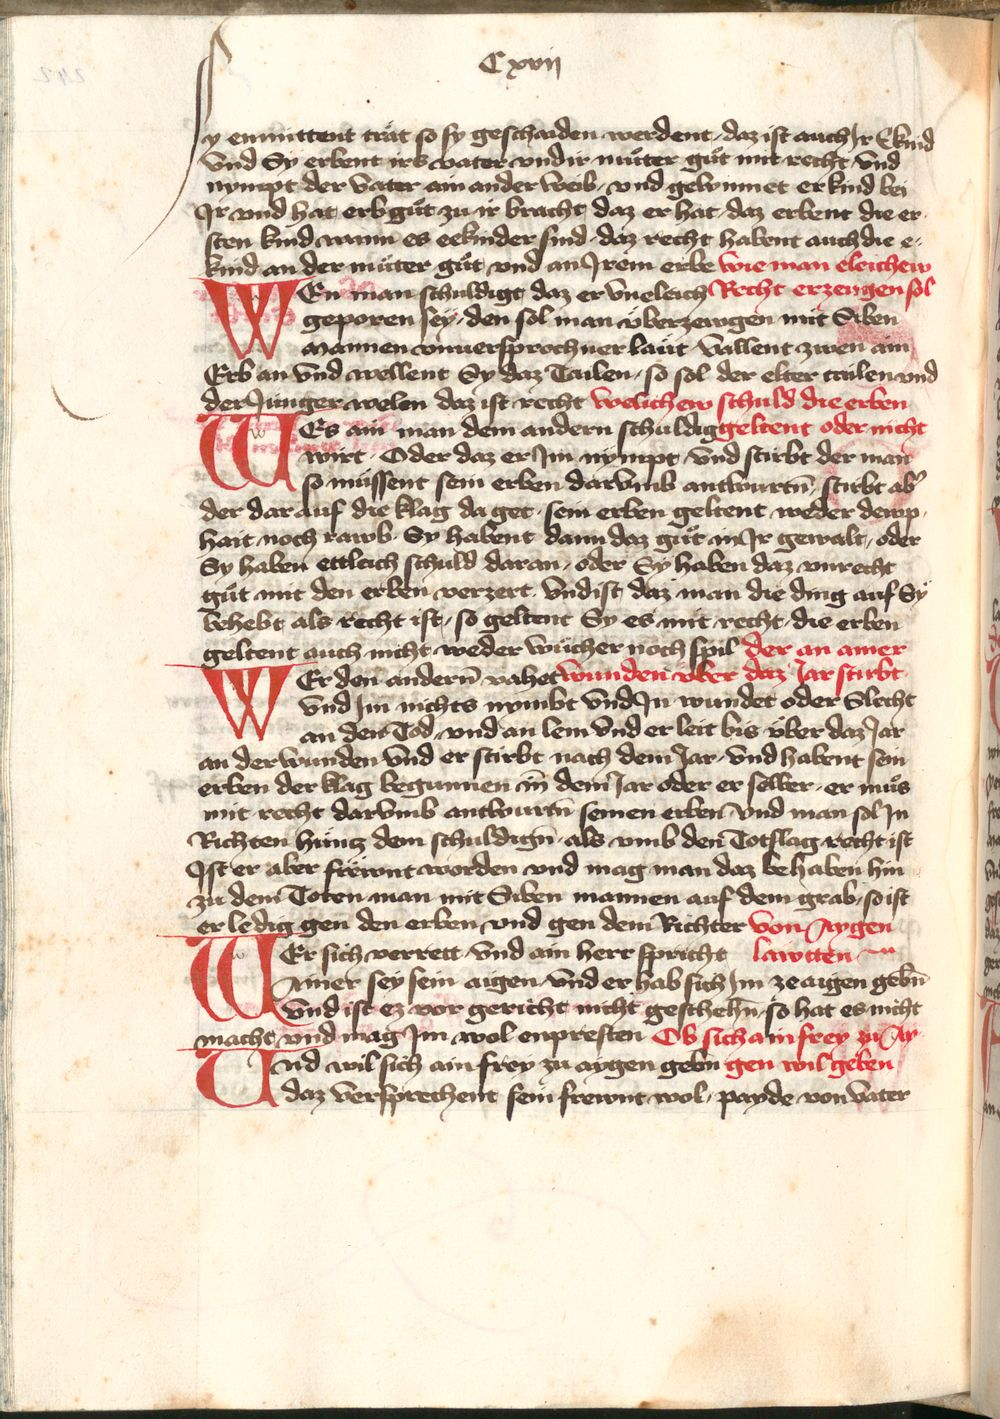 Cxvij
Sy enmittent trät so sy geschaiden werdent, daz ist auch Jr Ekind
Vnd Sy erbent irs vater vnd ir müter gůt mit recht, Vnd
nympt der Vater ain ander weib, vnd gewinnet er kind bei
Jr vnd hat erbgůt zu ir bracht daz er hat, daz erbent die er-
sten kind wann es eekinder sind, daz recht habent auch die e-
kind an der müter gůt vnd an Jrem erbe wie man eleichew
WEn man schuldigt daz er vneleich Recht erzeugen sol
geporen sey, den sol man vberzewgen mit Siben
mannen vnuersprochner laüt Vallent zwen ain
Erb an Vnd wellent Sy daz Tailen, so sol der elter tailen vnd
der Junger welen daz ist recht welichew schuld die erben
WEs ain man dem andern schuldig geltent oder nicht
wirt, Oder daz er Jm nympt, Vnd stirbt der man
so müssent sein erben darVmb antwurtn̄, stirbt ab'
der dar auf die klag da get, sein erben geltent weder dewp-
hait noch rawb, Sy habent dann daz gůt in Jr gewalt, oder
Sy haben ettleich schuld daran, oder Sy haben daz vnrecht
gůt mit den erben verzert, Vnd ist daz man die ding auf Sy
behebt als recht ist, so geltent Sy es mit recht, die erben
geltent auch nicht weder wücher noch spil der an ainer
WEr den andern̄ vahet wunden vber daz Jar stirbt
Vnd Jm nichts nymbt Vnd Jn wundet oder Slecht
an den Tod, vnd an lem Vnd er leit bis über daz Jar
an der wunden Vnd er stirbt nach dem Jar, Vnd habent sein
erben der klag begunnen in dem Jar oder er selber, er můs
mit recht darVmb antwurtn̄ seinen erben, Vnd man sol Jn
Richten hüntz dem schuldign̄ als vmb den Totslag recht ist
Jst er aber frewnt worden vnd mag man daz behaben hin
zu dem Toten man mit Siben mannen auf dem grab, so ist
er ledig gen den erben vnd gen dem Richter von Aygen
WEr sich verrett Vnd ain herr spricht lawtten
Ainer sey sein aigen, Vnd er hab sich Jm ze aigen gebn̄
Vnd ist ez vor gericht nicht geschehn̄, so hat es nicht
macht, vnd mag Jm wol enpresten Ob sich ain frey zu Ay-
Vnd wil sich ain frey zu aygen gebn gen wil geben
daz versprechent sein frewnt wol, payde von vater